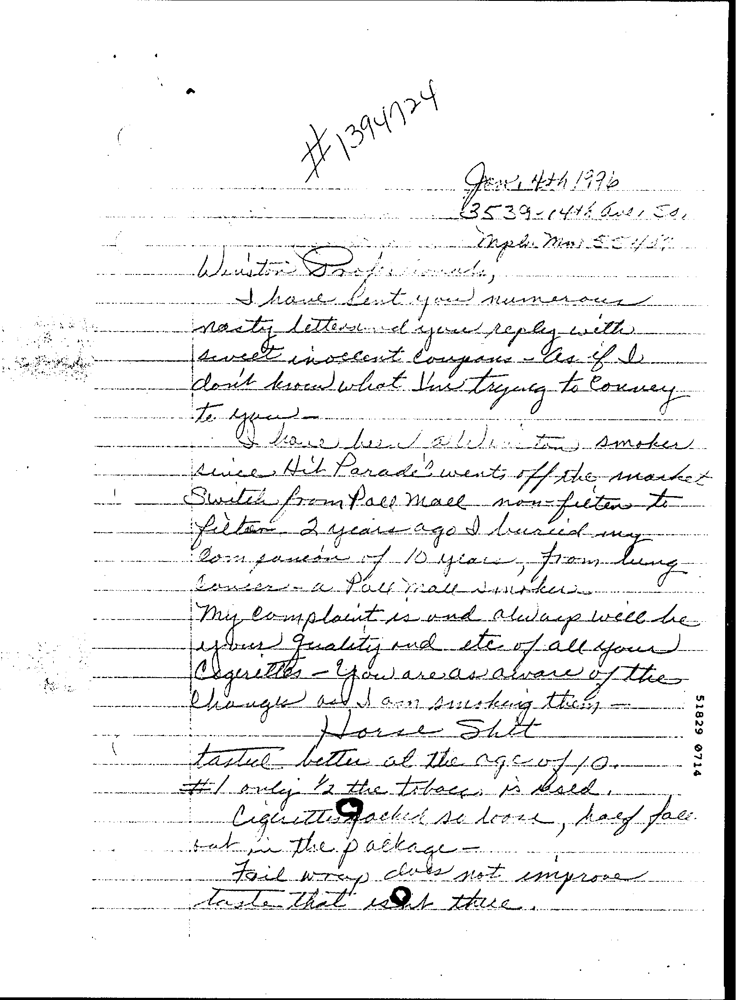 #1394724
Jan. 4th 1996
3539-14th Ave. So.
Mpls. Mn
Winston
I have sent you numerous
nasty letters and your reply with
sweet inoccent coupons - as if I
don't know what I'm trying to convey
to you -
I have been a Winston smoker
since Hit Parade's went off the market
Switch from Pall Mall non-filter to
filter 2 years ago I buried my
companion of 10 years, from lung
cancer - a Pall Mall smoker.
My complaint is and always will be
your quality and etc of all your
Cigerettes - You are as aware of the
changes as I am smoking them -
Horse Shit
tasted better at the age of 10.
#1 only 1/2 the tobacc is used.
Cigerettes packed so loose, half fall
out in the package -
Foil wrap does not improve
taste that isn't there.
51829 0714